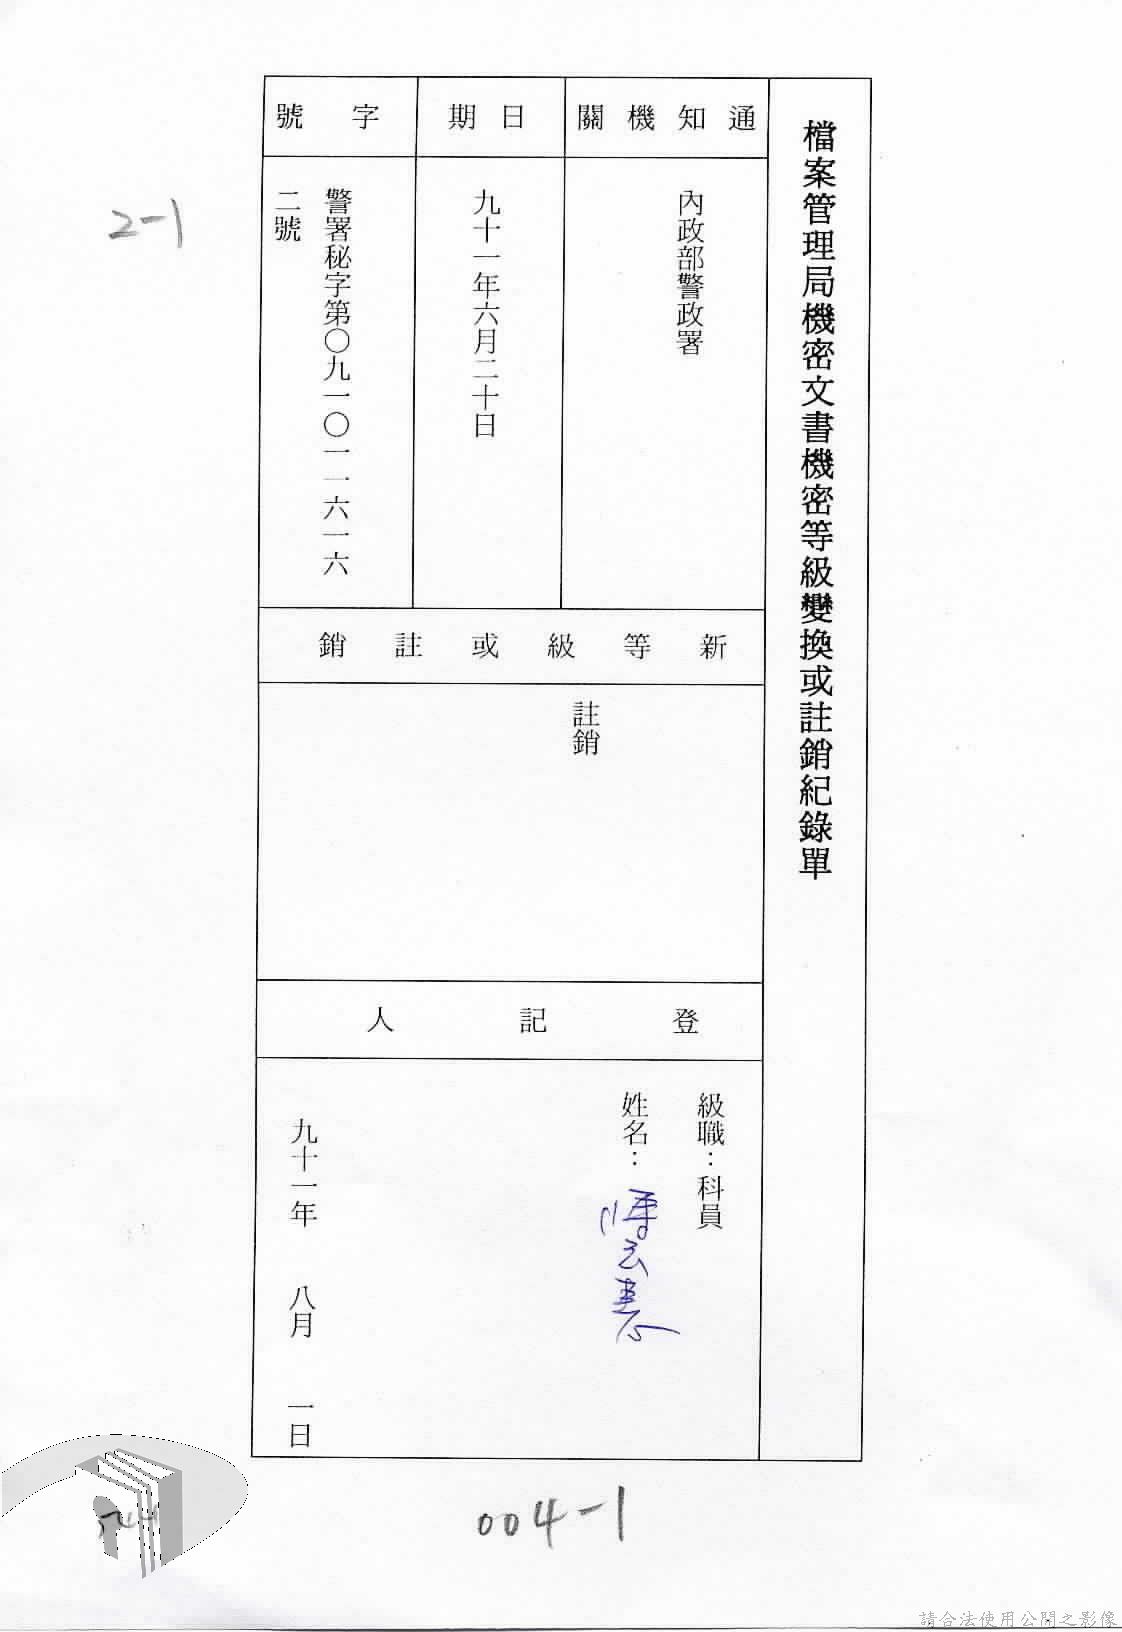 檔案管理局機密文書機密等級變換或註銷紀錄單
通知機關
內政部警政署
日期
九十一年六月二十日
字號
警署秘字第〇九一〇一一六一六
二號
新等級或註銷
註銷
登記人
級職：科員
姓名：
九十一年 八月 一日
2-1
004-1
請合法使用公開之影像